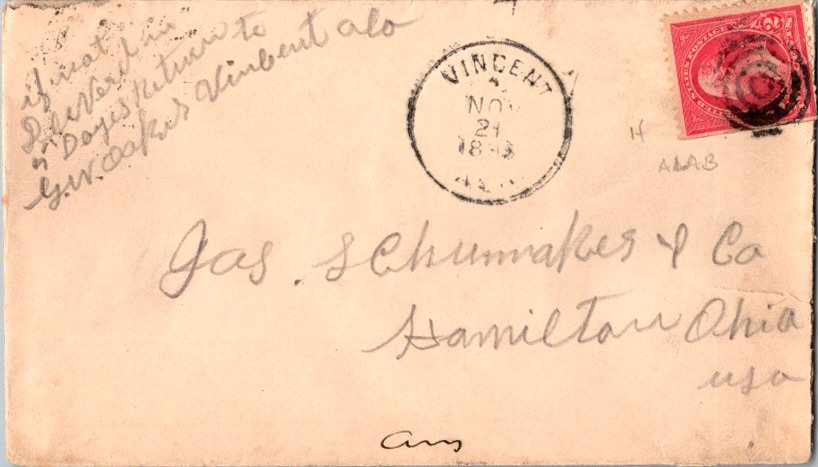 if not
Deleverd in
5 Days Return to
G.W. Oakes Vincent ala
VINCENT
NOV
21
ALA.
2
H
ALAB
Jas. Schumakes & Co
Hamilton Ohio
usa
ans